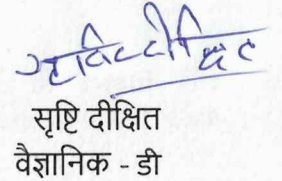 सृष्टि दीक्षित
वैज्ञानिक - डी